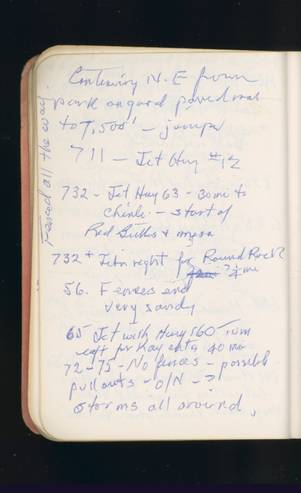 Continuing N. E from
park on good paved road
to 7,500' —
711 — Jct Hwy # 12
732 - Jct Hwy 63 - 30 mi to
Chinle. — start of
Red Buttes + mesa
732+ Turn right for Round Rock
¾ mi
56. Fences end
very sandy
65 Jct with Hway 160
west for Kayenta 40 mi
72-75 - No fences - possible
pull outs - O/N - ?
storms all around,
Fenced all the way